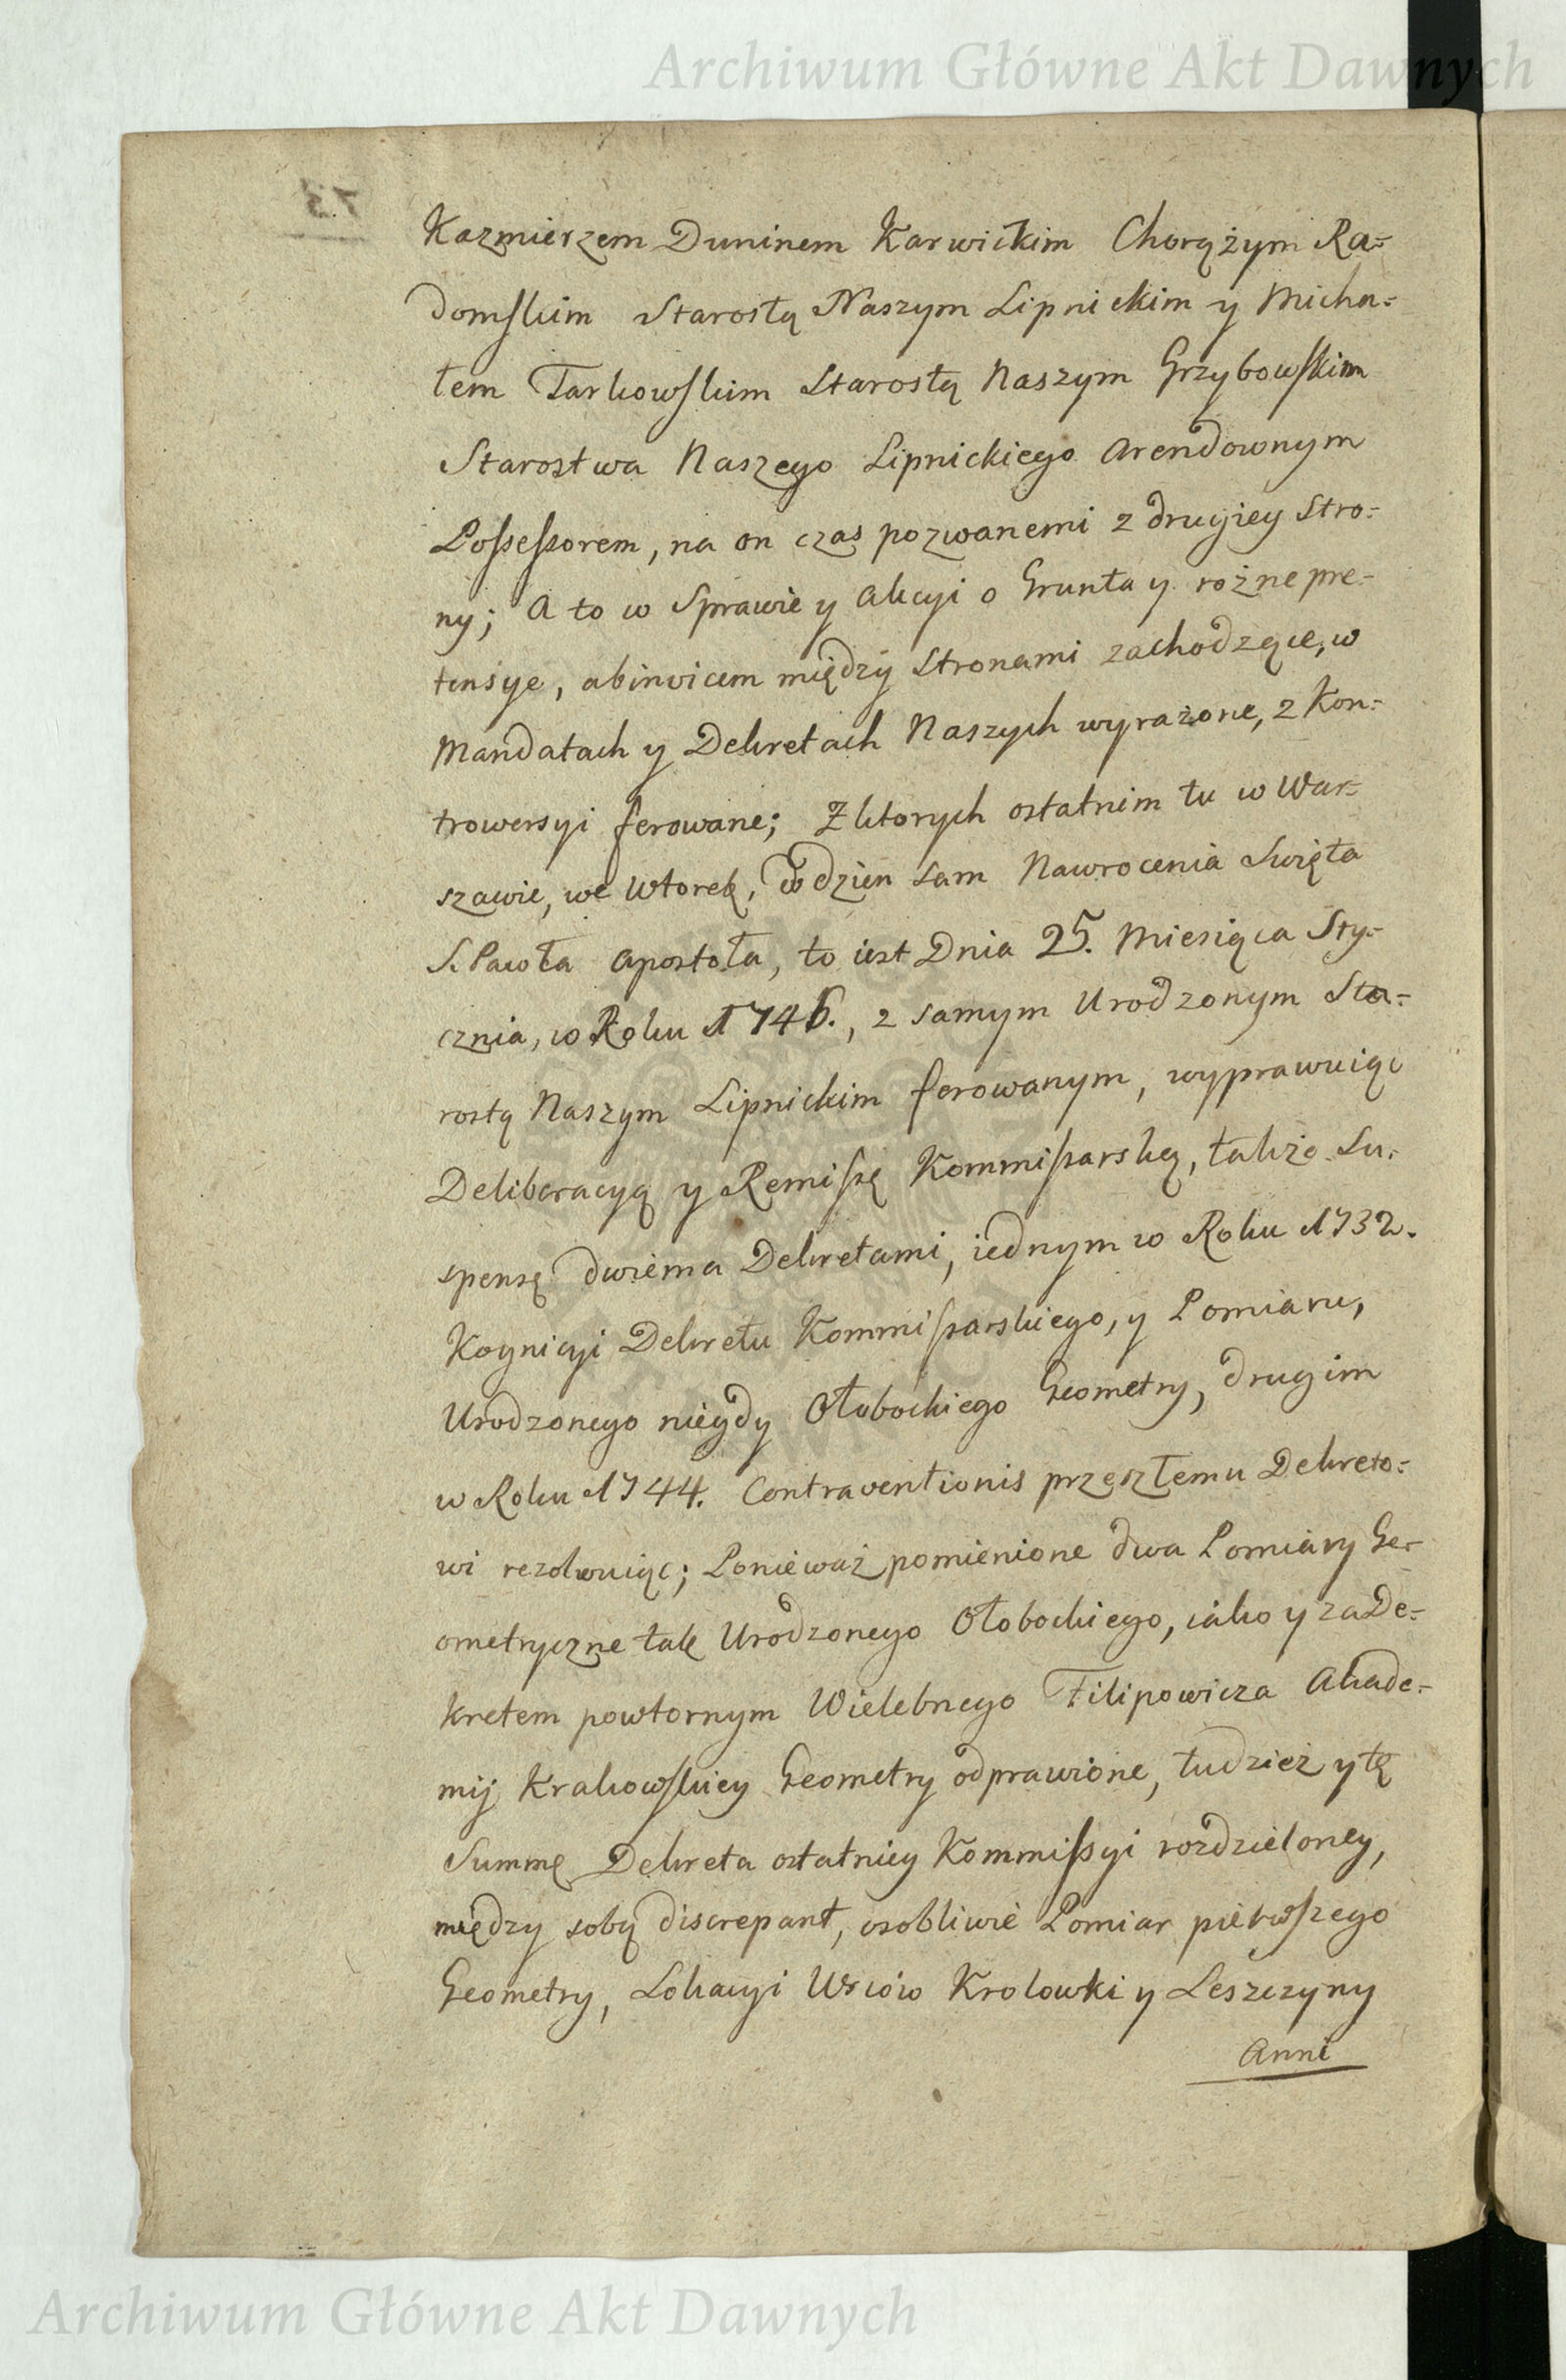 Archiwum Główne Akt Dawnych
Kazmierzem Duninem Karwickim Chorążym Ra=
domskim Starostą Naszym Lipnickim y Micha=
łem Tarkowskim Starostą Naszym Grzybowskim
Starostwa Naszego Lipnickiego Arendownym
Possessorem, na on czas pozwanemi z drugiey Stro=
ny; A to w Sprawie y Akcyi o Grunta y rożne pre=
tensye, abinvicem między Stronami zachodzące, w
Mandatach y Dekretach Naszych wyrażone, z Kon=
trowersyi ferowane; Z ktorych ostatnim tu w War=
szawie, we Wtorek, w dzien sam Nawrocenia Swięta
S. Pawła Apostoła, to iest Dnia 25. Miesiąca Sty=
cznia, w Roku 1746., z samym Urodzonym Sta=
rostą Naszym Lipnickim ferowanym, wyprawuiąc
Deliberacyą y Remissę Kommissarską, także Su=
spensę dwiema Dekretami, iednym w Roku 1732.
Kognicyi Dekretu Kommissarskiego, y Pomiaru,
Urodzonego niegdy Ołobockiego Geometry, drugim
w Roku 1744. Contraventionis przeszłemu Dekreto=
wi rezolwuiąc; Ponieważ pomienione dwa Pomiary Ge=
ometryczne tak Urodzonego Ołobockiego, iako y za De=
kretem powtornym Wielebnego Filipowicza Akade=
mij Krakowskiey Geometry odprawione, tudzież y tę
Summę Dekreta ostatniey Kommissyi rozdzieloney,
między sobą discrepant, osobliwie Pomiar pierwszego
Geometry, Lokacyi Wsiow Krolowki y Leszczyny
Anni
Archiwum Główne Akt Dawnych